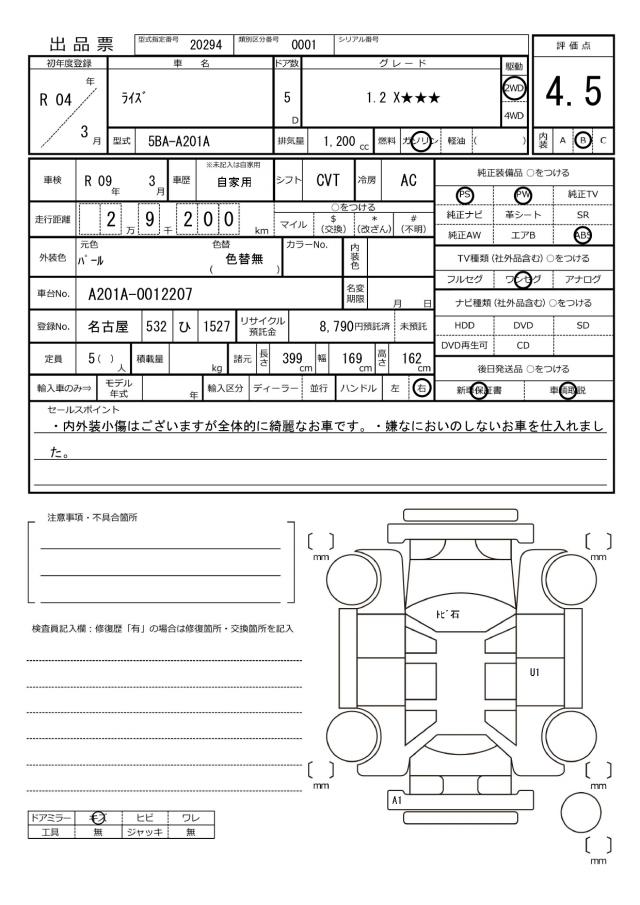 出品票 型式指定番号 20294 類別区分番号 0001 シリアル番号
評価点
4.5
内装 A B C
初年度登録 車名 ドア数 グレード 駆動
R 04 年 3 月
ﾗｲｽﾞ 5 D 1.2 X★★★ 2WD
4WD
型式 5BA-A201A 排気量 1,200 cc 燃料 ガソリン 軽油 ( )
車検 R 09 年 3 月 車歴 ※未記入は自家用 自家用 シフト CVT 冷房 AC
走行距離 2 万 9 千 2 0 0 km ○をつける
マイル $ (交換) * (改ざん) # (不明)
外装色 元色 ﾊﾟｰﾙ 色替 ( 色替無 ) カラーNo. 内装色
車台No. A201A-0012207 名変期限 月 日
登録No. 名古屋 532 ひ 1527 リサイクル預託金 8,790円預託済 未預託
定員 5( ) 人 積載量 kg 諸元 長さ 399 cm 幅 169 cm 高さ 162 cm
輸入車のみ⇒ モデル年式 年 輸入区分 ディーラー 並行 ハンドル 左 右
純正装備品 ○をつける
PS PW 純正TV
純正ナビ 革シート SR
純正AW エアB ABS
TV種類(社外品含む)○をつける
フルセグ ワンセグ アナログ
ナビ種類(社外品含む)○をつける
HDD DVD SD
DVD再生可 CD
後日発送品 ○をつける
新車保証書 車輌取説
セールスポイント
・内外装小傷はございますが全体的に綺麗なお車です。・嫌なにおいのしないお車を仕入れまし
た。
注意事項・不具合箇所
検査員記入欄：修復歴「有」の場合は修復箇所・交換箇所を記入
ドアミラー キズ ヒビ ワレ
工具 無 ジャッキ 無
〔 〕 〔 〕
mm mm
ﾄﾋﾞ石
U1
〔 〕 〔 〕
mm mm
A1
〔 〕
mm